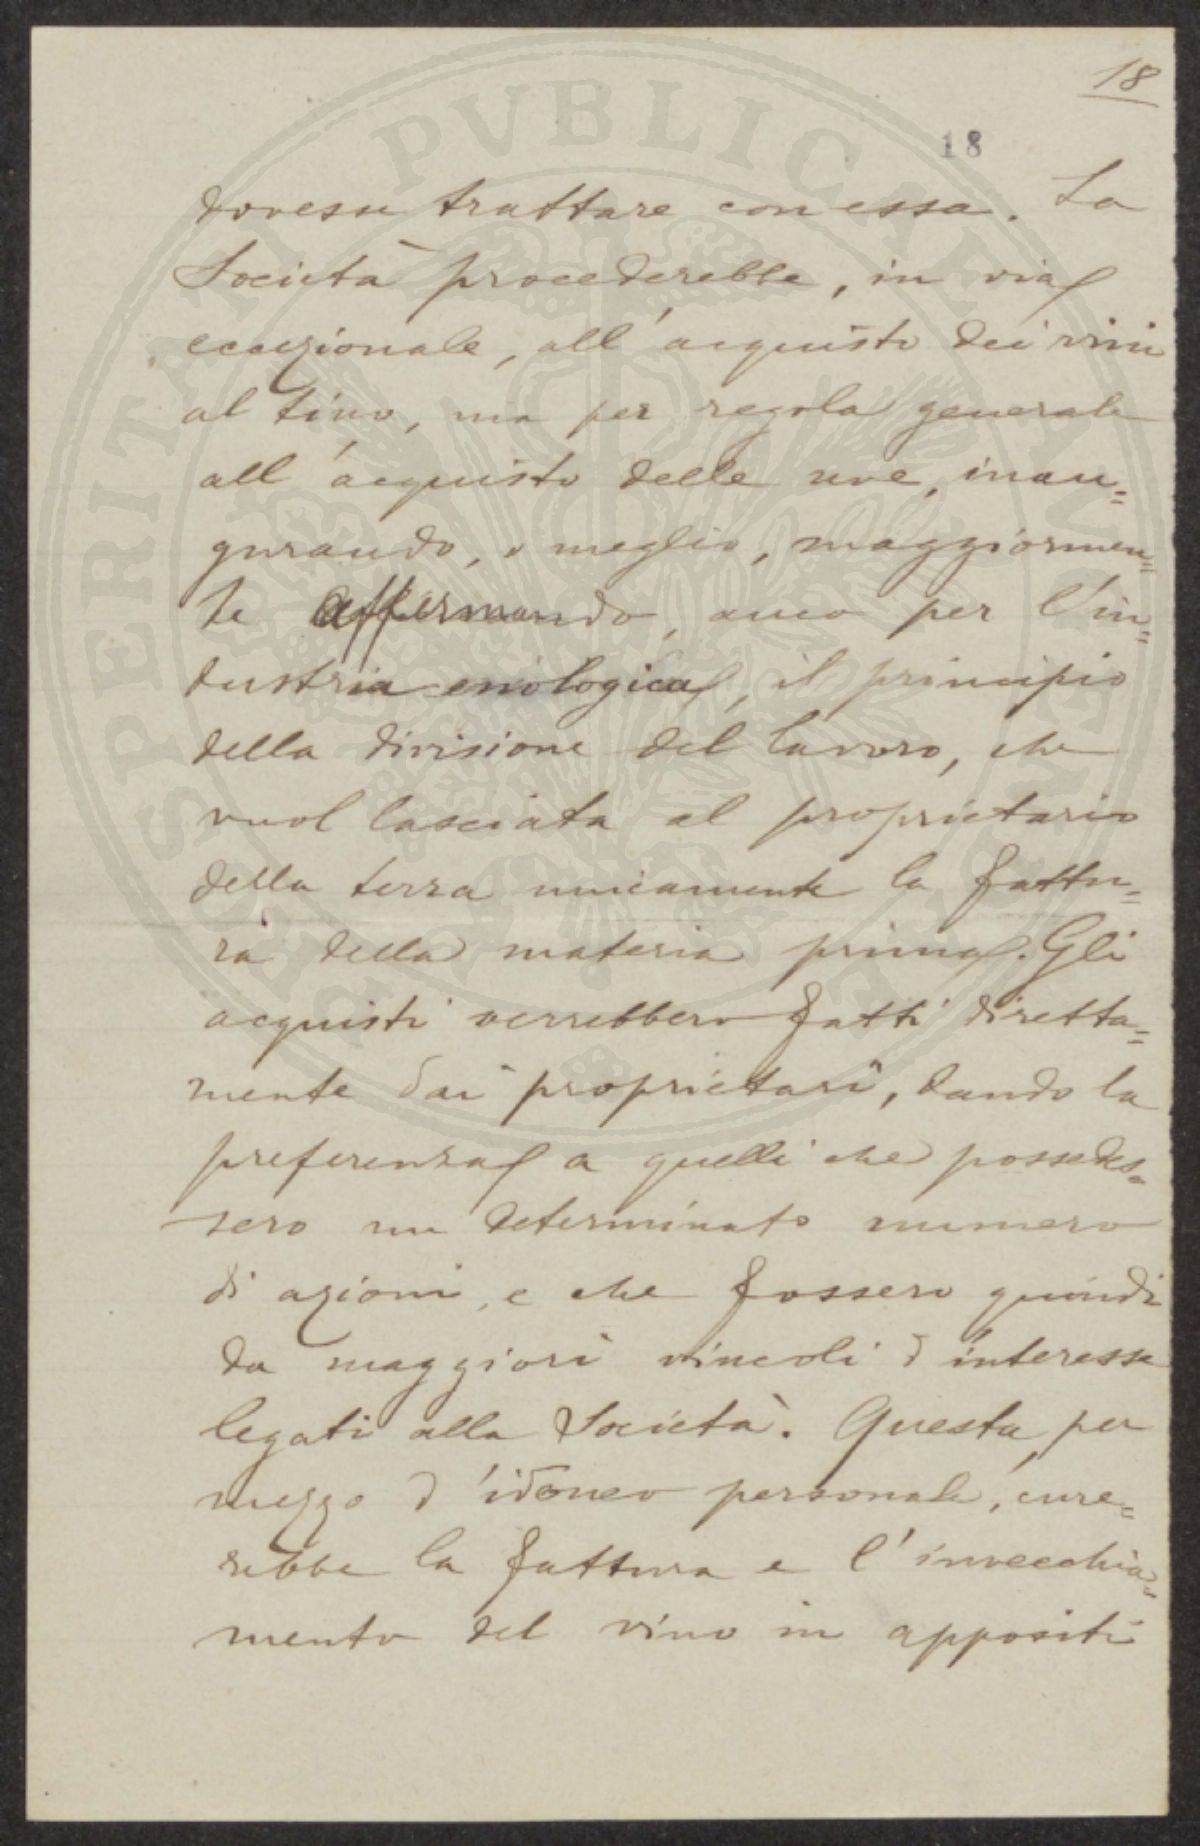 18
18
dovesse trattare con essa. La
Società procederebbe, in via
eccezionale, all'acquisto dei vini
al tino, ma per regola generale
all'acquisto delle uve, inau=
gurando, o meglio, maggiormen=
te affermando, anco per l'in=
dustria enologica, il principio
della divisione del lavoro, che
vuol lasciata al proprietario
della terra unicamente la fattu=
ra della materia prima. Gli
acquisti verrebbero fatti diretta=
mente dai proprietari, dando la
preferenza a quelli che possedes=
sero un determinato numero
di azioni, e che fossero quindi
da maggiori vincoli d'interesse
legati alla Società. Questa, per
mezzo d'idoneo personale, cure=
rebbe la fattura e l'invecchia=
mento del vino in appositi